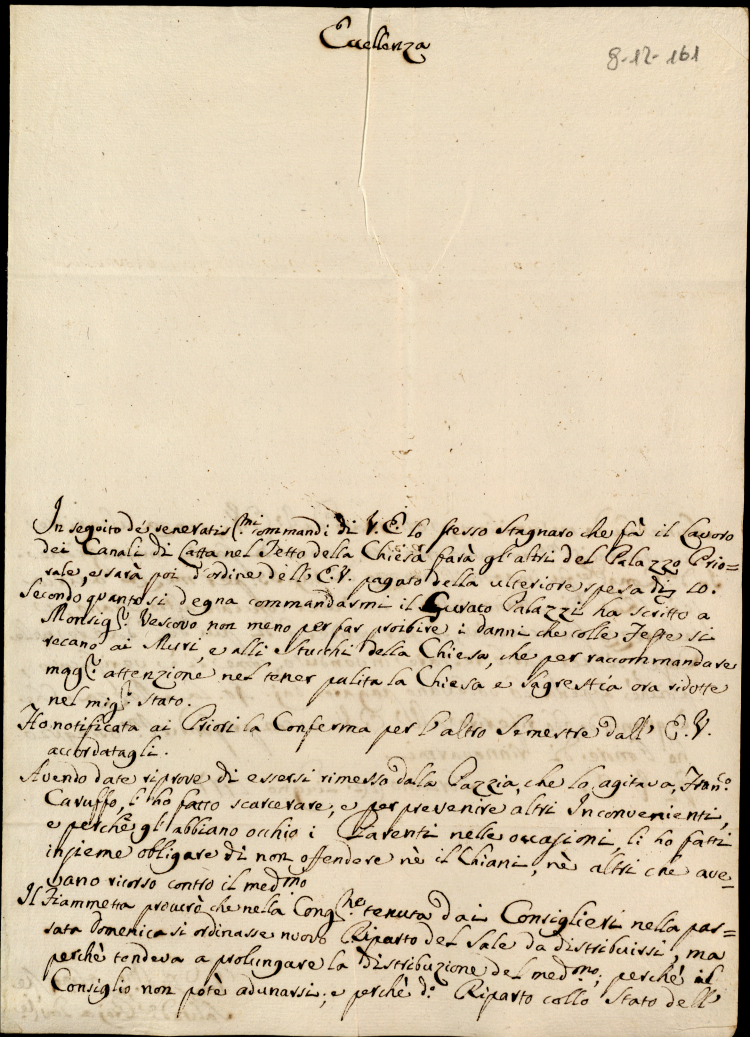 Eccellenza
8-12-161
In seguito de' veneratis.mi commandi di V. E. lo stesso Stagnaro che fà il Lavoro
dei Canali di Latta nel Tetto della Chiesa farà gl'altri del Palazzo Prio=
rale, e sarà poi d'ordine dell'E.V. pagato della ulteriore spesa di 10.
Secondo quanto si degna commandarmi il Curato Palazzi ha scritto a
Monsig.r Vescovo non meno per far proibire i danni che colle Teste si
recano ai Muri, e alli Stucchi della Chiesa, che per raccommandare
magg.r attenzione nel tener pulita la Chiesa e Sagrestia ora ridotte
nel mig.r Stato.
Ho notificata ai Priori la Conferma per l'altro Semestre dall'E.V.
accordatagli.
Avendo date riprove di essersi rimesso dalla Pazzia, che lo agitava, Fran.co
Caruffo, l'ho fatto scarcerare, e per prevenire altri Inconvenienti,
e perchè gl'abbiano occhio i Parenti nelle occasioni, li ho fatti
insieme obligare di non offendere nè il Chiani, nè altri che ave=
vano ricorso contro il med.mo
Il Fiammetta procurò che nella Cong.ne tenuta dai Consiglieri nella pas=
sata domenica si ordinasse nuovo Riparto del Sale da distribuirsi, ma
perchè tendeva a prolungare la distribuzione del med.mo, perchè il
Consiglio non potè adunarsi, e perchè d.o Riparto collo Stato dell'